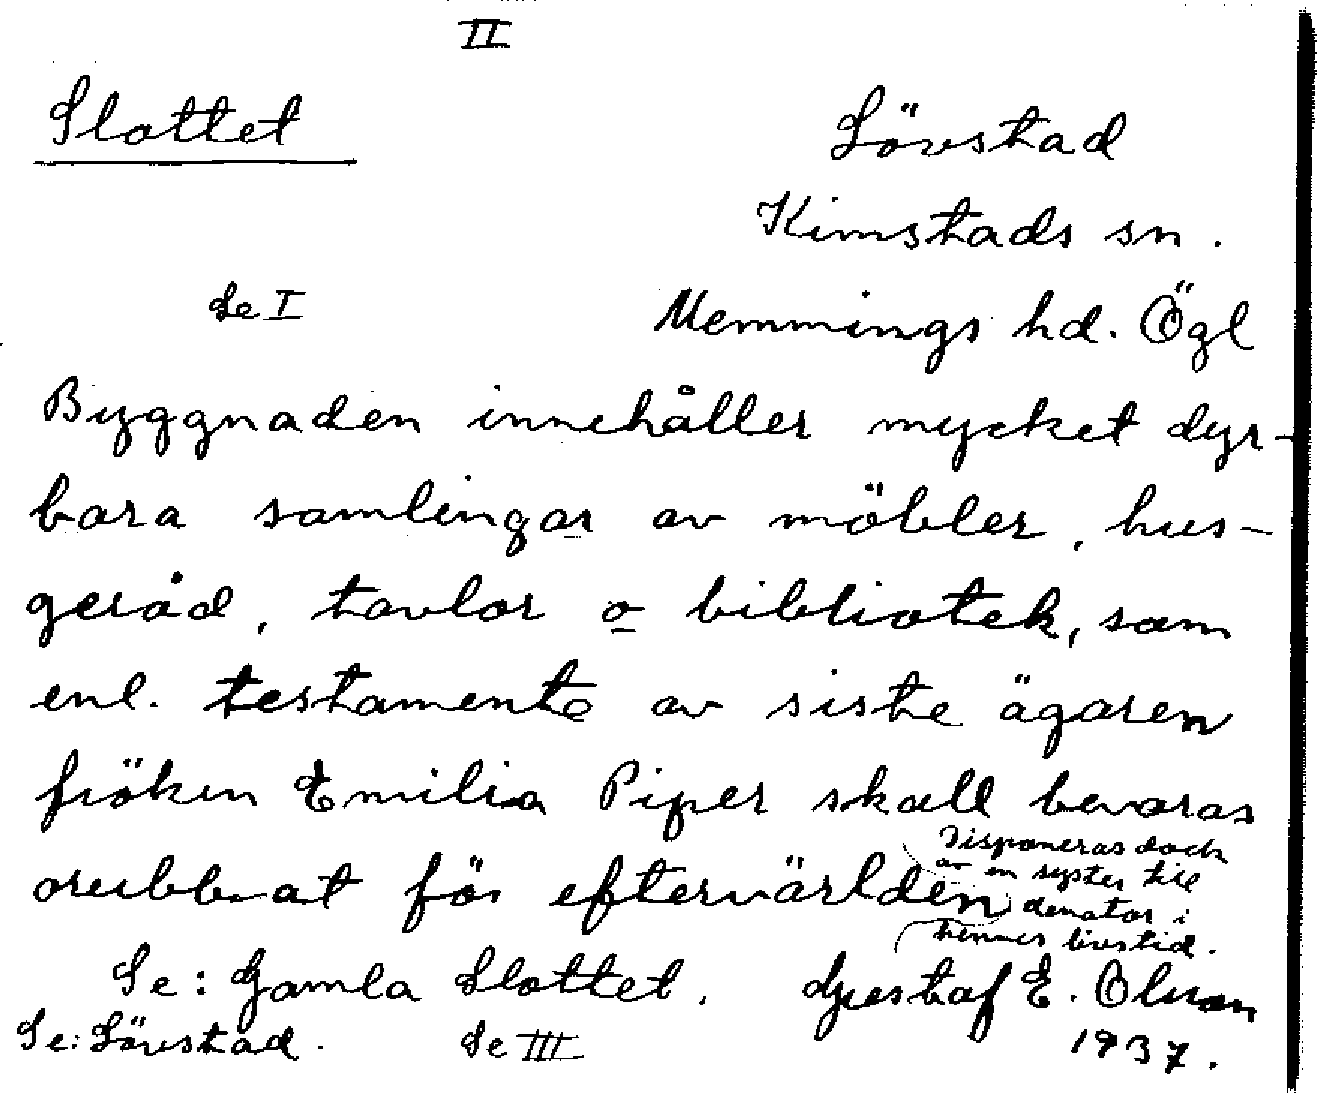 II
Slottet
Lövstad
Kimstads sn.
Se I
Memmings hd. Ögl
Byggnaden innehåller mycket dyr-
bara samlingar av möbler, hus-
geråd, tavlor o bibliotek, som
enl. testamente av siste ägaren
fröken Emilia Piper skall bevaras
orubbat för eftervärlden
Disponeras dock
av en syster till
donator i
hennes livstid.
Se: Gamla Slottet.
Gustaf E. Olsson
Se: Lövstad.
Se III
1937.